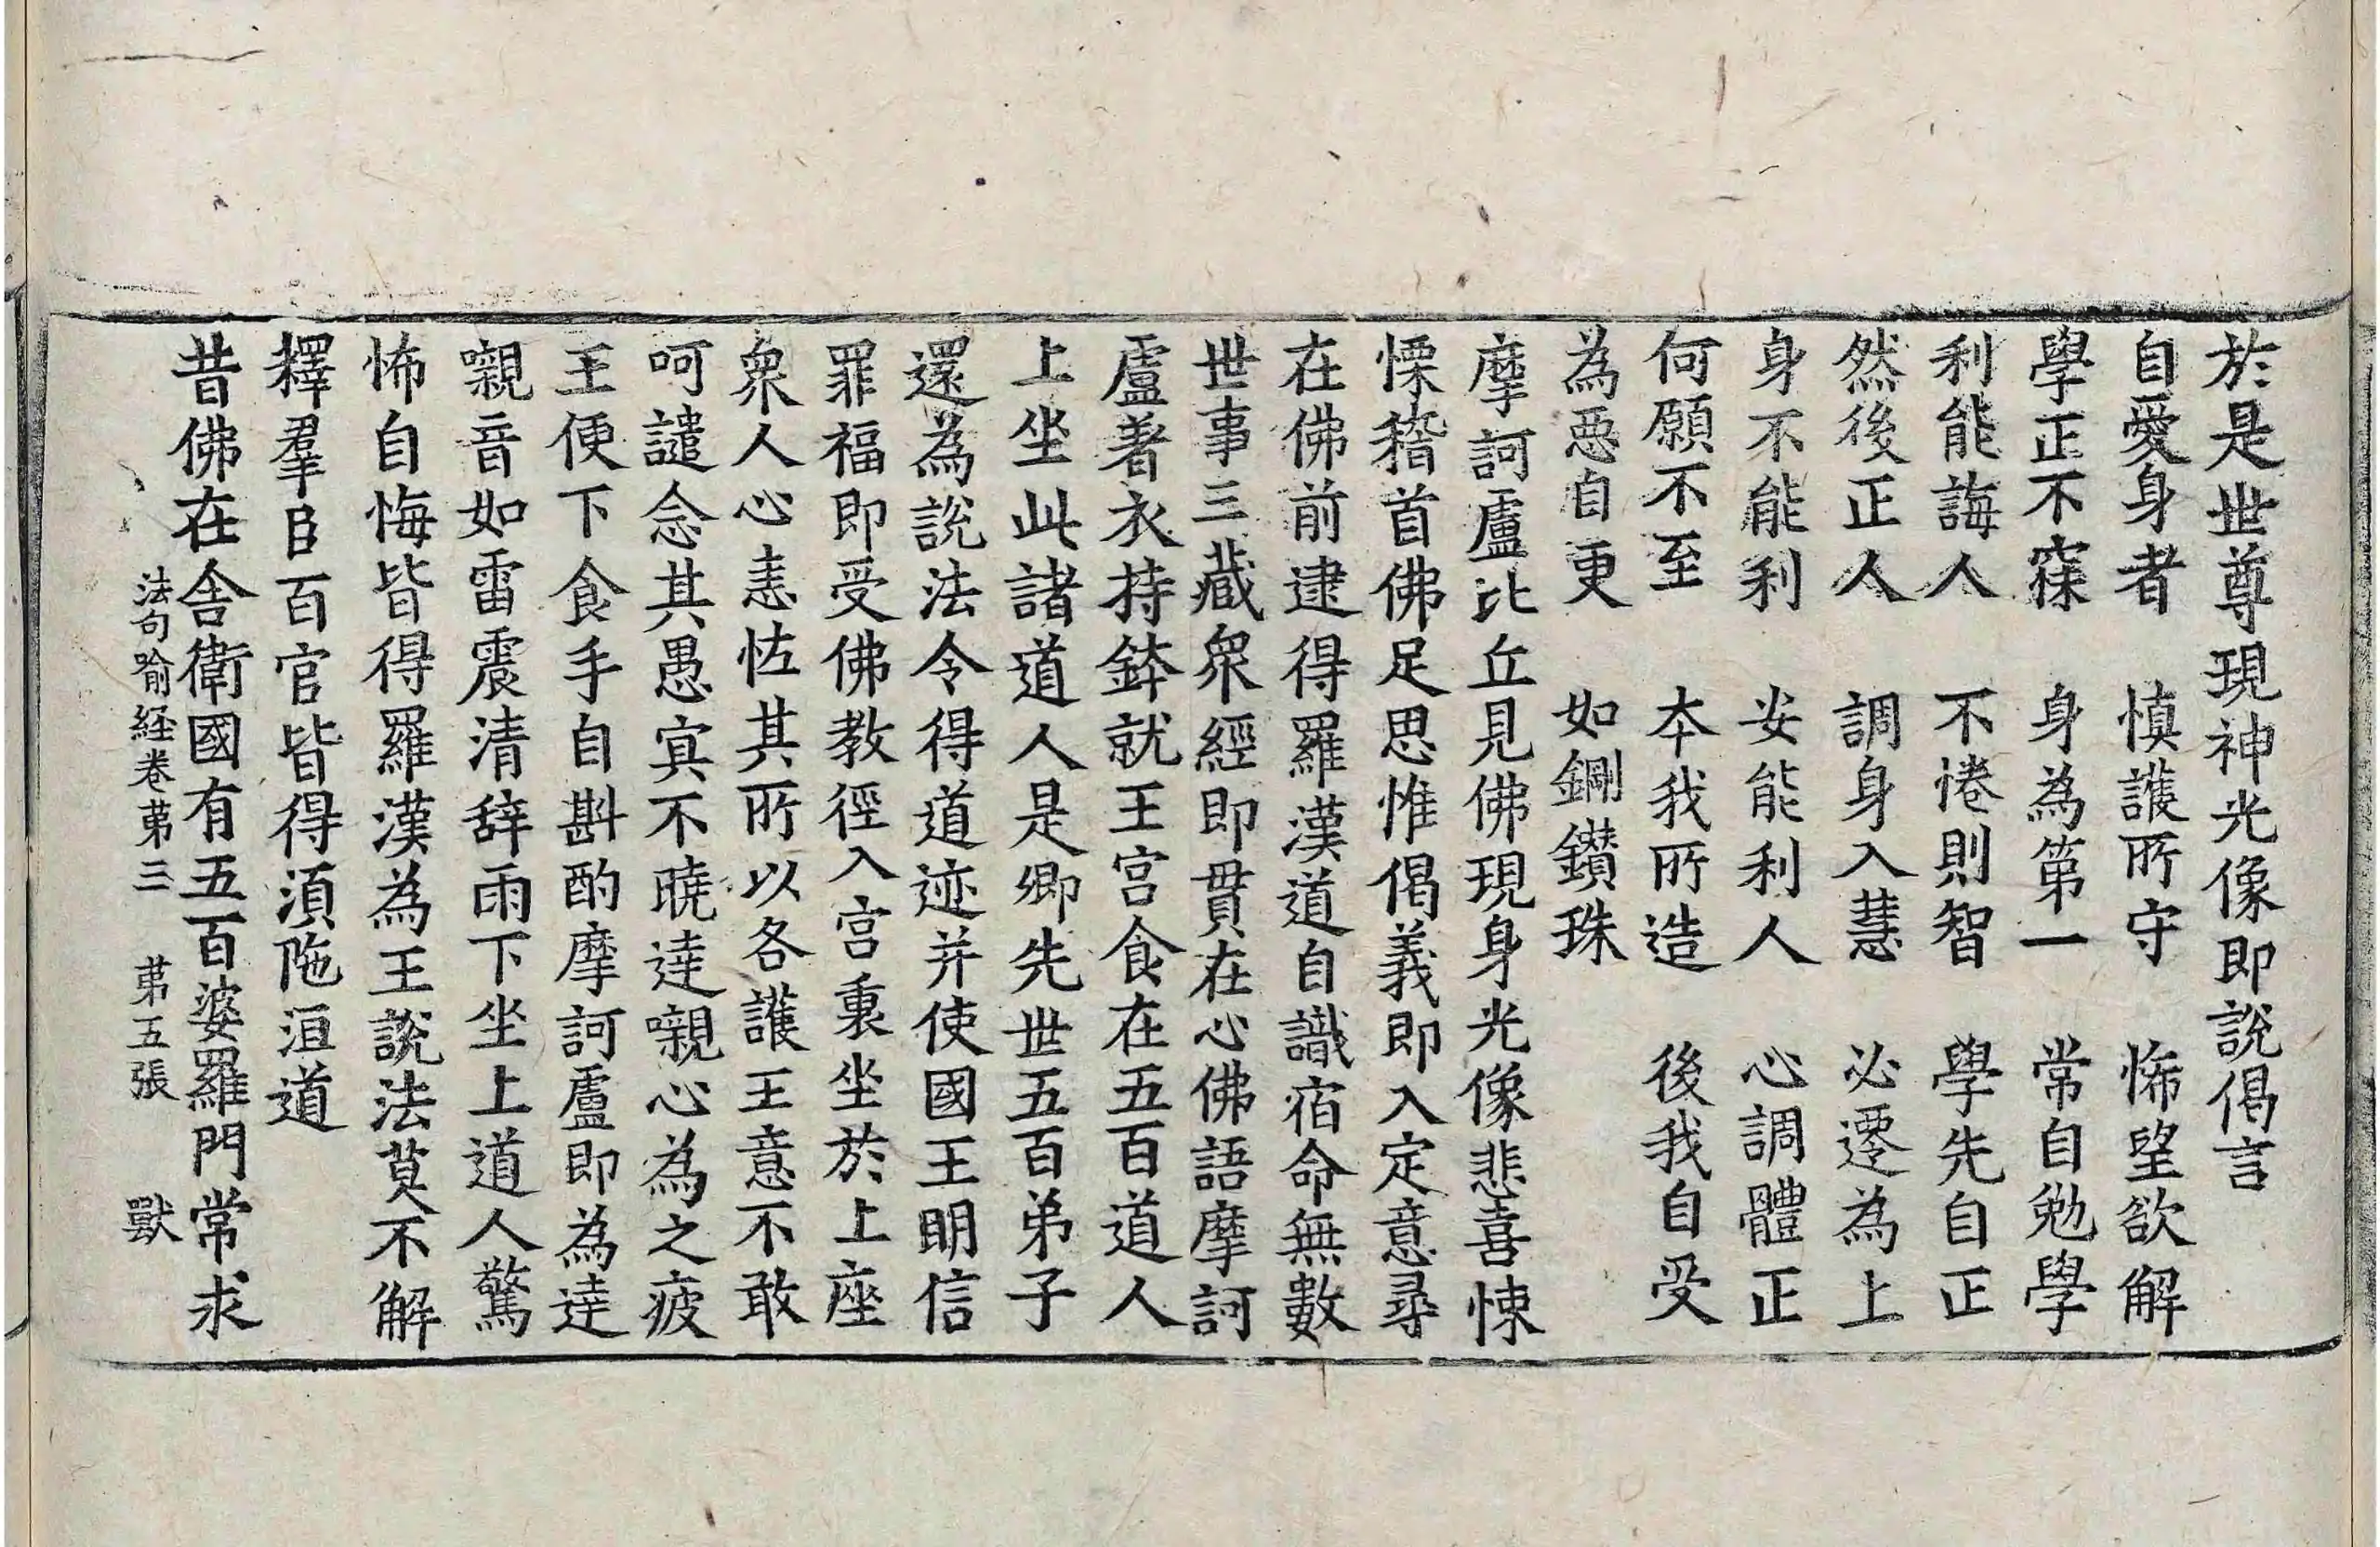 於是世尊現神光像即說偈言
自愛身者　慎護所守　悕望欲解
學正不寐　身為第一　常自勉學
利能誨人　不惓則智　學先自正
然後正人　調身入慧　必遷為上
身不能利　安能利人　心調體正
何願不至　本我所造　後我自受
為惡自更　如鋼鑽珠
摩訶盧比丘見佛現身光像悲喜悚
慄稽首佛足思惟偈義即入定意尋
在佛前逮得羅漢道自識宿命無數
世事三藏衆經即貫在心佛語摩訶
盧著衣持鉢就王宮食在五百道人
上坐此諸道人是卿先世五百弟子
還為說法令得道迹并使國王明信
罪福即受佛教徑入宮裏坐於上座
衆人心恚恠其所以各護王意不敢
呵譴念其愚㝠不曉達嚫心為之疲
王便下食手自斟酌摩訶盧即為達
嚫音如雷震清辭雨下坐上道人驚
怖自悔皆得羅漢為王說法莫不解
釋羣臣百官皆得須陁洹道
昔佛在舍衛國有五百婆羅門常求
法句喻経卷苐三　苐五張　獸